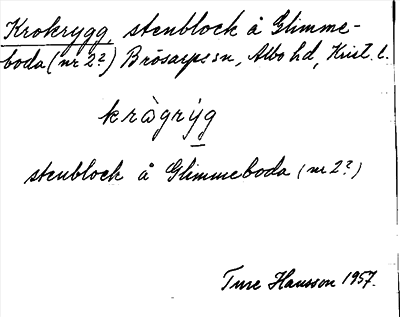 Krokrygg, stenblock å Glimme-
boda (nr 2?) Brösarps sn, Albo hd, Krist. l.
kràgrýg
stenblock å Glimmeboda (nr 2?)
Ture Hansson 1957.